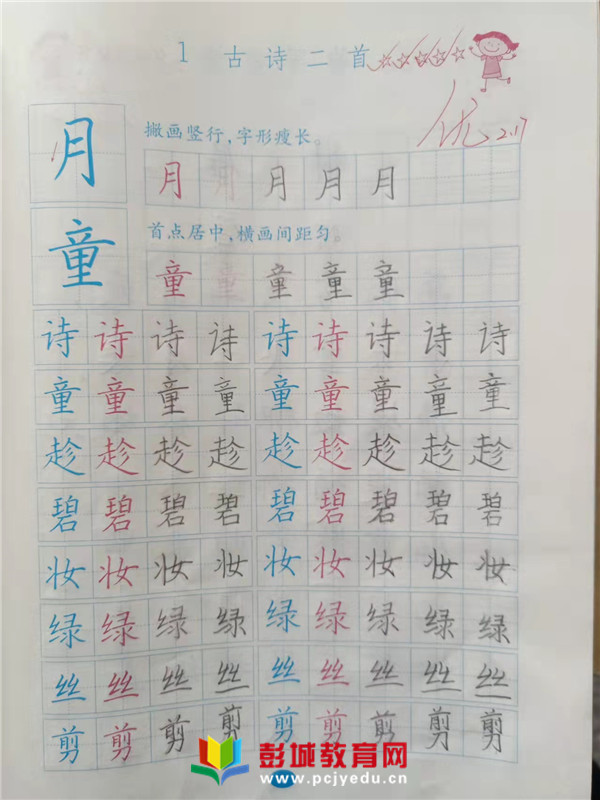 1 古诗二首
优 2.17
月 撇画竖行,字形瘦长。
月 月 月 月 月
童 首点居中,横画间距匀。
童 童 童 童 童
诗 诗 诗 诗 诗 诗 诗 诗 诗
童 童 童 童 童 童 童 童 童
趁 趁 趁 趁 趁 趁 趁 趁 趁
碧 碧 碧 碧 碧 碧 碧 碧 碧
妆 妆 妆 妆 妆 妆 妆 妆 妆
绿 绿 绿 绿 绿 绿 绿 绿 绿
丝 丝 丝 丝 丝 丝 丝 丝 丝
剪 剪 剪 剪 剪 剪 剪 剪 剪
彭城教育网
www.pcjyedu.cn